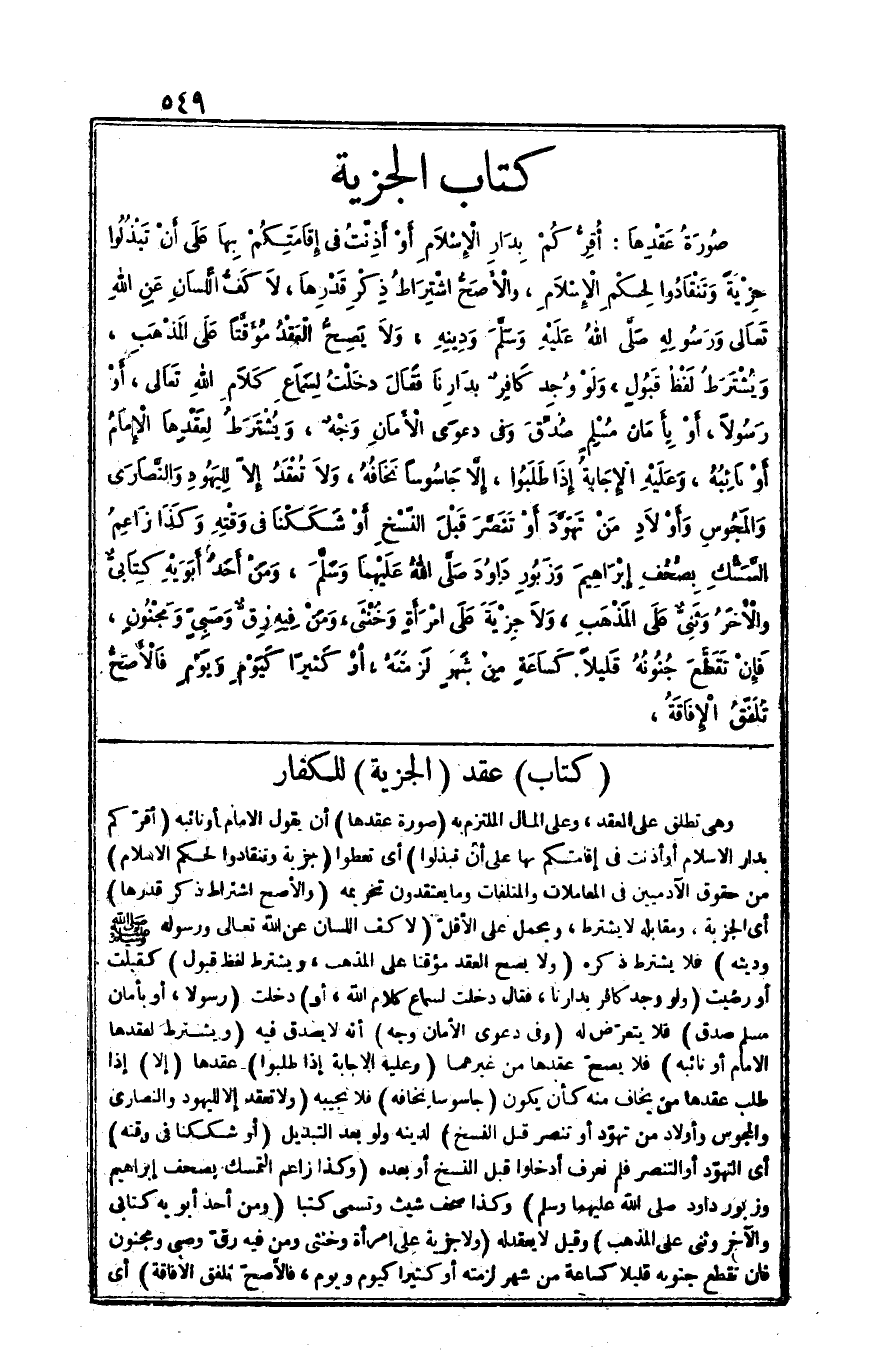 ٥٤٩
كتاب الجزية
صُورَةُ عَقْدِهَا : أُقِرُّكُمْ بِدَارِ الْإِسْلَامِ أَوْ أَذِنْتُ فِى إِقَامَتِكُمْ بِهَا عَلَى أَنْ تَبْذُلُوا
جِزْيَةً وَتَنْقَادُوا لِحِكْمِ الْإِسْلَامِ ، والْأَصَحُّ اشْتِرَاطُ ذِكْرِ قَدْرِهَا ، لَا كَفُّ اللِّسَانِ عَنِ اللهِ
تَعَالَى وَرَسُولِهِ صَلَّى اللهُ عَلَيْهِ وَسَلَّمَ وَدِينِهِ ، وَلَا يَصِحُّ الْعَقْدُ مُؤَقَّتًا عَلَى الْمَذْهَبِ ،
وَيُشْتَرَطُ لَفْظُ قَبُولٍ ، وَلَوْ وُجِدَ كَافِرٌ بِدَارِنَا فَقَالَ دخَلْتُ لِسَمَاعِ كَلَامِ اللهِ تَعَالَى ، أَوْ
رَسُولاً ، أَوْ بِأَمَانِ مُسْلِمٍ صُدِّقَ وَفى دعوَى الْأَمَانِ وَجْهٌ ، وَيُشْتَرَطُ لِعَقْدِهَا الْإِمَامُ
أَوْ نَائِبُهُ ، وَعَلَيْهِ الْإِجَابَةُ إِذَا طَلَبُوا ، إِلَّا جَاسُوسًا نَخَافُهُ ، وَلَا تُعْقَدُ إِلاَّ لِلْيَهُودِ وَالنَّصَارَى
وَالْمَجُوسِ وَأَوْلَادِ مَنْ تَهَوَّدَ أَوْ تَنَصَّرَ قَبْلَ النَّسْخِ أَوْ شَكَكْنَا فى وَقْتِهِ وَكَذَا زَاعِمُ
التَّمَسُّكِ بِصُحُفِ إِبْرَاهِيمَ وَزَبُورِ دَاوُدَ صَلَّى اللهُ عَلَيْهِمَا وَسَلَّمَ ، وَمَنْ أَحَدُ أَبَوَيْهِ كِتَابِىٌّ
والْآخَرُ وَثَنِىٌّ عَلَى الْمَذْهَبِ ، وَلَا جِزْيَةَ عَلَى امْرَأَةٍ وَخُنْثَى ، وَمَنْ فِيهِ رِقٌّ وَصَبِىٍّ وَمَجْنُونٍ ،
فَإِنْ تَقَطَّعَ جُنُونُهُ قَلِيلاً كَسَاعَةٍ مِنْ شَهْرٍ لَزِمَتْهُ ، أَوْ كَثِيرًا كَيَوْمٍ وَيَوْمٍ فَالْأَصَحُّ
تُلَفَّقُ الْإِفَاقَةُ ،
( كتاب ) عقد ( الجزية ) للكفار
وهى تطلق على العقد ، وعلى المال الملتزم به ( صورة عقدها ) أن يقول الامام أو نائبه ( أقرّكم
بدار الاسلام أو أذنت فى إقامتكم بها على أن تبذلوا ) أى تعطوا ( جزية وتنقادوا لحكم الاسلام )
من حقوق الآدميين فى المعاملات والمتلفات وما يعتقدون تحريمه ( والأصح اشتراط ذكر قدرها )
أى الجزية ، ومقابله لا يشترط ، ويحمل على الأقلّ ( لا كف اللسان عن الله تعالى ورسوله ﷺ
ودينه ) فلا يشترط ذكره ( ولا يصح العقد مؤقتا على المذهب ، ويشترط لفظ قبول ) كقبلت
أو رضيت ( ولو وجد كافر بدارنا ، فقال دخلت لسماع كلام الله ، أو ) دخلت ( رسولا ، أو بأمان
مسلم صدق ) فلا يتعرّض له ( وفى دعوى الأمان وجه ) أنه لا يصدق فيه ( ويشترط لعقدها
الامام أو نائبه ) فلا يصحّ عقدها من غيرهما ( وعليه الاجابة إذا طلبوا ) عقدها ( إلا ) إذا
طلب عقدها من يخاف منه كأن يكون ( جاسوسا نخافه ) فلا نجيبه ( ولا تعقد إلا لليهود والنصارى
والمجوس وأولاد من تهوّد أو تنصر قبل الفسخ ) لدينه ولو بعد التبديل ( أو شككنا فى وقته )
أى التهوّد أو التنصر فلم نعرف أدخلوا قبل الفسخ أو بعده ( وكذا زاعم التمسك بصحف إبراهيم
وزبور داود صلى الله عليهما وسلم ) وكذا صحف شيث وتسمى كتبا ( ومن أحد أبويه كتابى
والآخر وثنى على المذهب ) وقيل لا يعقد له ( ولا جزية على امرأة وخنثى ومن فيه رقّ وصبى ومجنون
فان تقطع جنونه قليلا كساعة من شهر لزمته أو كثيرا كيوم ويوم ، فالأصحّ تلفق الافاقة ) أى